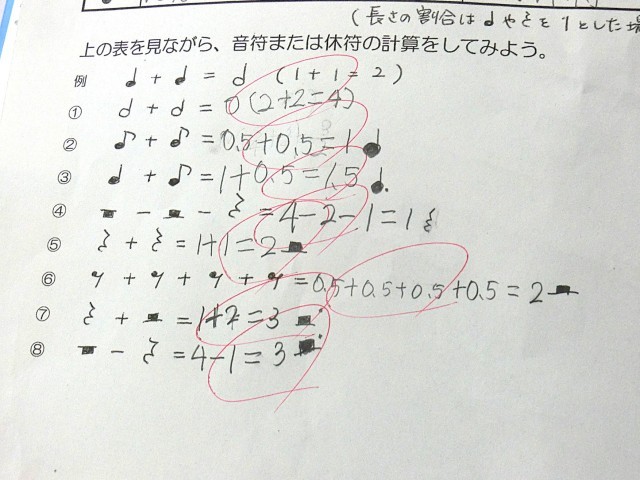 (長さの割合は♩や𝄽を1とした場
上の表を見ながら、音符または休符の計算をしてみよう。
例 ♩ + ♩ = 𝅗𝅥 (1+1=2)
① 𝅗𝅥 + 𝅗𝅥 = 𝅝 (2+2=4)
② ♪ + ♪ = 0.5+0.5=1 ♩
③ ♩ + ♪ = 1+0.5=1.5 ♩.
④ 𝄻 - 𝄼 - 𝄽 = 4-2-1=1 𝄽
⑤ 𝄽 + 𝄽 = 1+1=2 𝄼
⑥ 𝄾 + 𝄾 + 𝄾 + 𝄾 = 0.5+0.5+0.5+0.5=2 𝄼
⑦ 𝄽 + 𝄼 = 1+2=3 𝄼.
⑧ 𝄻 - 𝄽 = 4-1=3 𝄼.